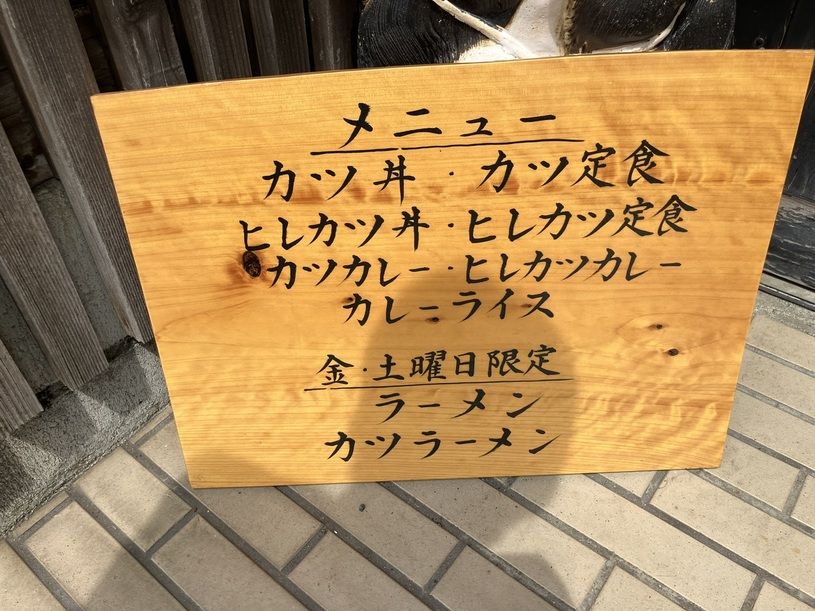 メニュー
カツ丼・カツ定食
ヒレカツ丼・ヒレカツ定食
カツカレー・ヒレカツカレー
カレーライス
金・土曜日限定
ラーメン
カツラーメン